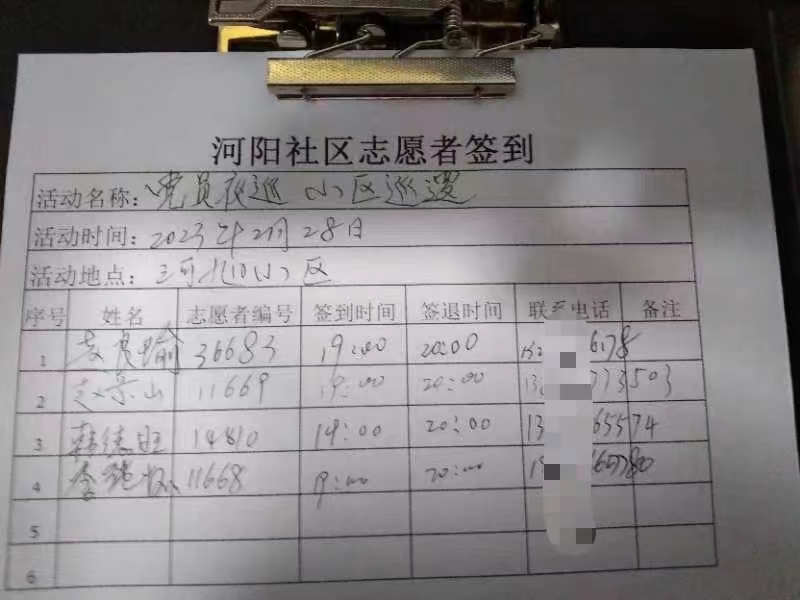 河阳社区志愿者签到
活动名称：党员夜巡 小区巡逻
活动时间：2023年2月28日
活动地点：三河北小区
序号 姓名 志愿者编号 签到时间 签退时间 联系电话 备注
1 36683 19:00 20:00 152 6178
2 赵景山 11669 19:00 20:00 13 773503
3 韩德旺 14810 19:00 20:00 13 65574
4 李 11668 19:00 20:00
5
6